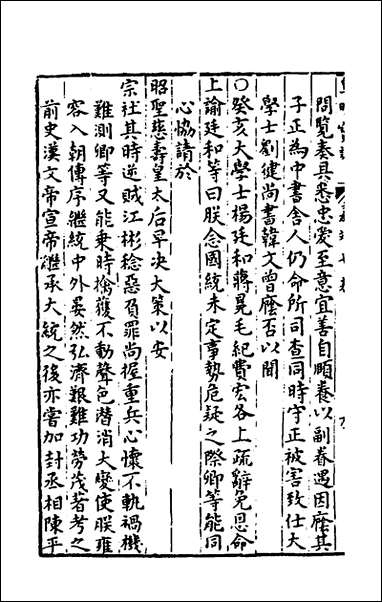 問覽奏具悉忠愛至意宜善自頤養以副眷遇因廕其
子正為中書舍人仍命所司查同時守正被害致仕大
學士劉健尚書韓文曾廕否以聞
○癸亥大學士楊廷和蔣冕毛紀費宏各上疏辭免恩命
上諭廷和等曰朕念國統未定事勢危疑之際卿等能同
心協請於
昭聖慈壽皇太后早决大策以安
宗社其時逆賊江彬稔惡負罪尚握重兵心懷不軌禍機
難測卿等又能乗時擒獲不動聲色潛消大變使朕雍
容入朝傳序繼統中外晏然弘濟艱難功勞茂著考之
前史漢文帝宣帝繼承大統之後亦嘗加封丞相陳平